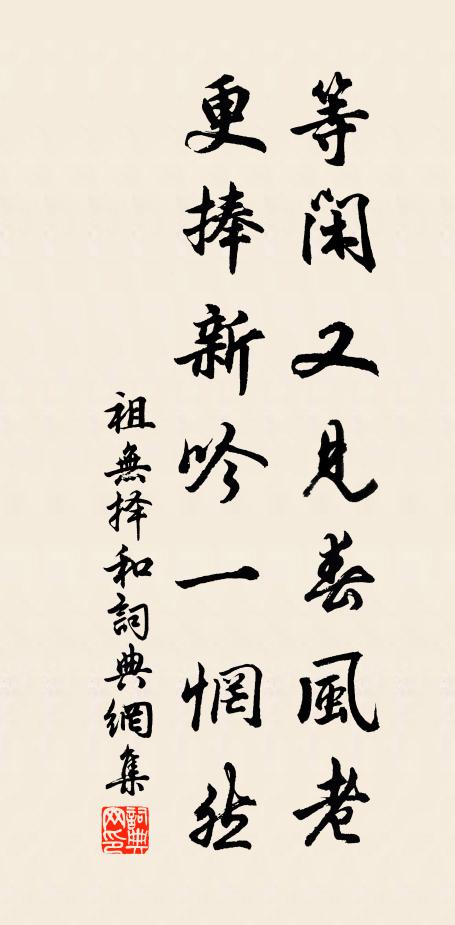 等閑又見春風老
更捧新吟一惘然
祖無择和詞典網集
詞典网印